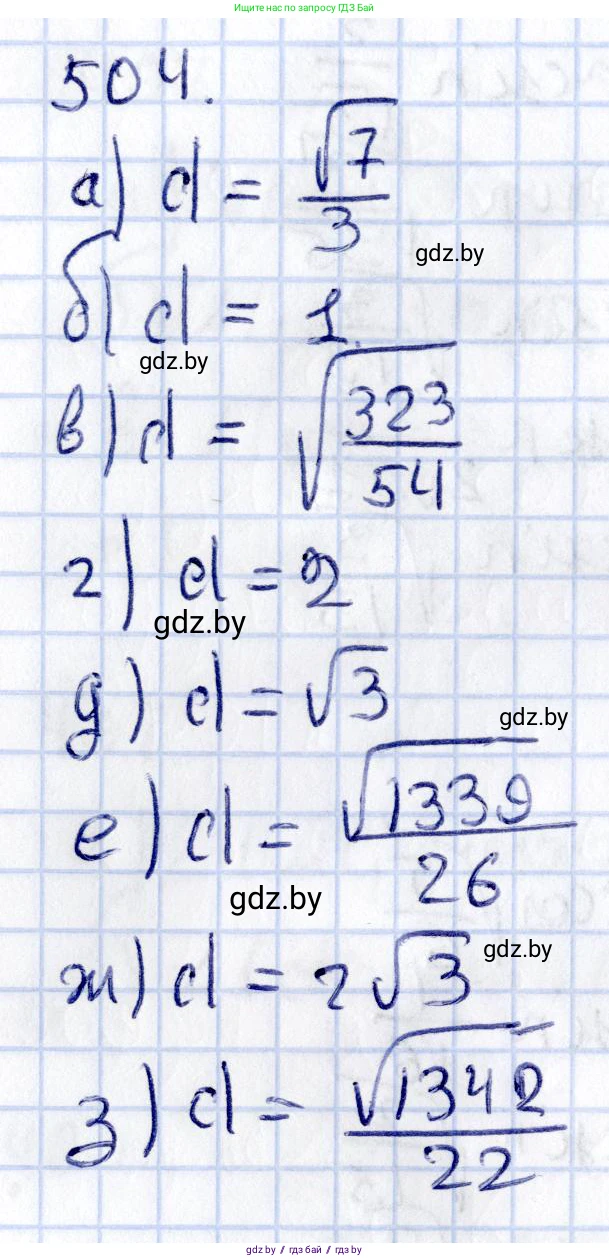 Ищите нас по запросу ГДЗ Бай
504.
а) d = √7/3
gdz.by
б) d = 1.
gdz.by
в) d = √(323/54)
г) d = 2
gdz.by
д) d = √3
gdz.by
е) d = √1339/26
gdz.by
ж) d = 2√3
gdz.by
з) d = √1342/22
gdz.by // гдз бай // гдз.by